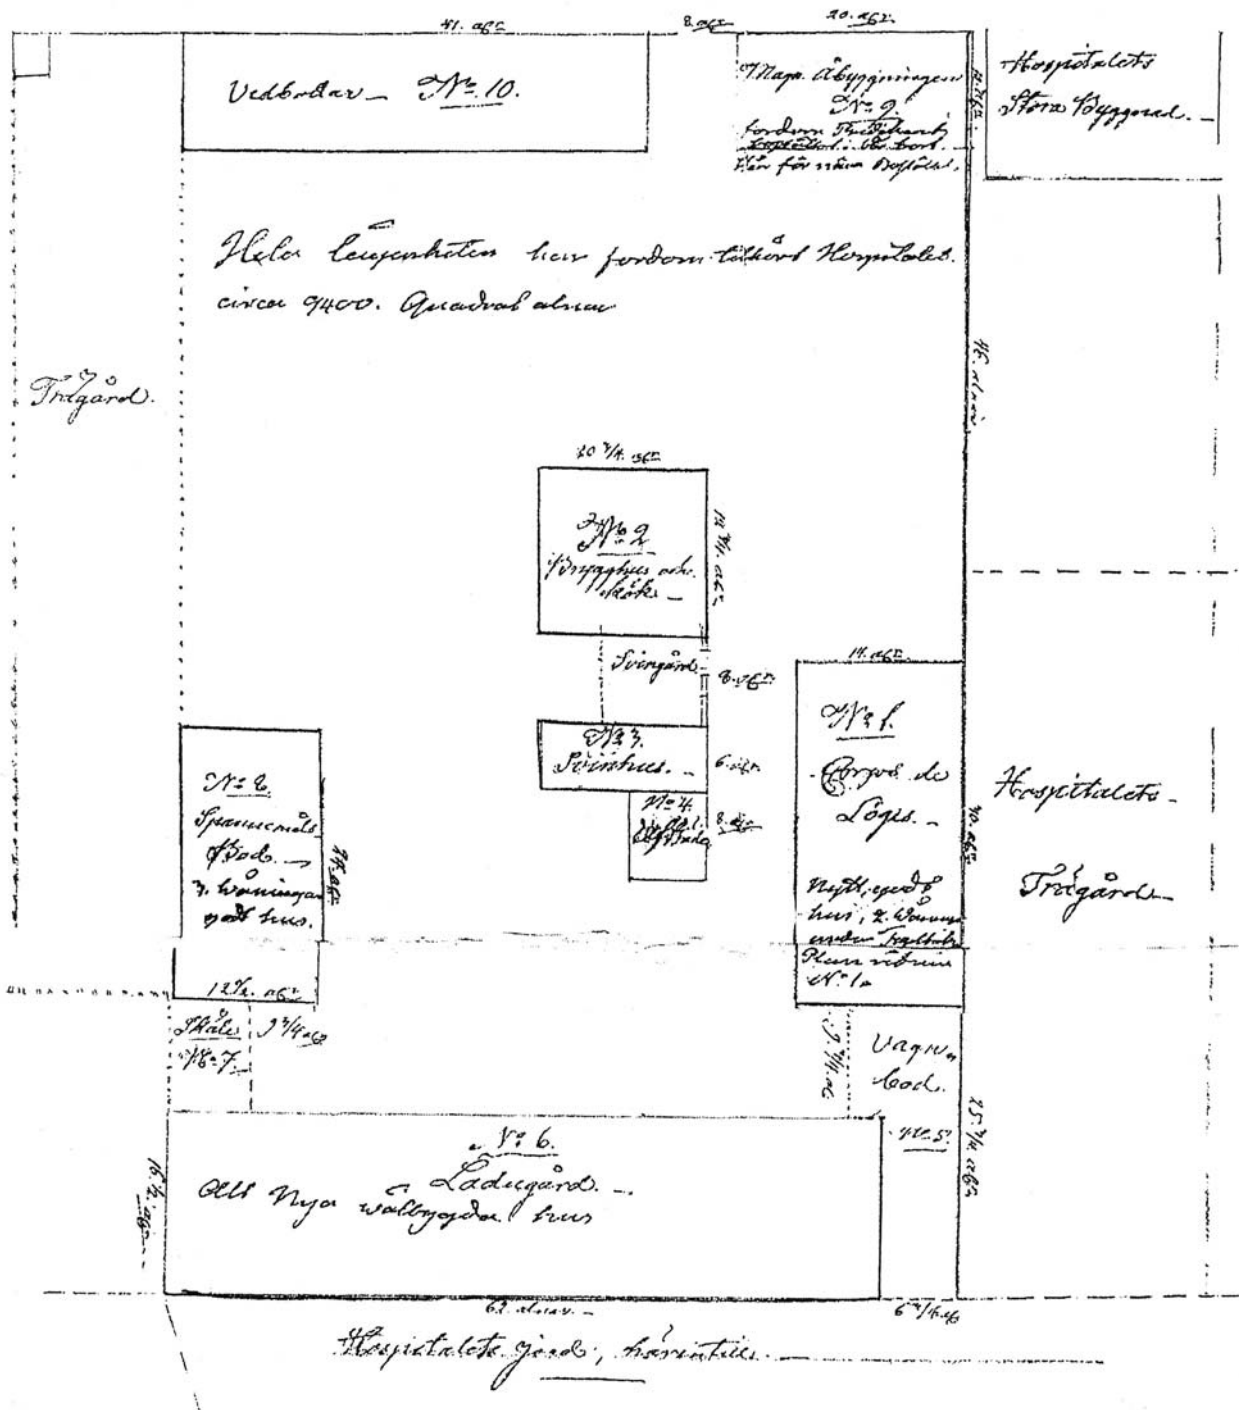 41. alr
8. alr
20. alr.
Vedbodar — No. 10.
Åbyggningen
No. 9.
fordom
Hospitalets
Stora Byggnad. —
Hela lägenheten har fordom tilhört Hospitalet.
circa 9400. Quadrat alnar
Trägård.
46. alnar
20 3/4. alr
No. 2
Brygghus och
Kök. —
Svingård.
8. alr.
14. alr.
No. 3.
Svinhus. —
6. alr.
No. 4.
8. alr
No. 1.
Corps de
Logis. —
Nytt, godt
hus, 2. Wånin
under
Plan ritning
No. 1.
30. alr
Hospitalets —
Trägård —
No. 8.
Spannemåls
Bod. —
3. Wåningar
godt hus.
24. alr
12 1/2. alr
9 3/4 alr
No. 7.
9 3/4. al
Vagns
bod.
No. 5.
25. 3/4 alr
No. 6.
Ladugård. —
Allt Nya wälbygda hus
16. 1/2. alr
62. alnar. —
6 3/4. al
Hospitalets jord, härintill.